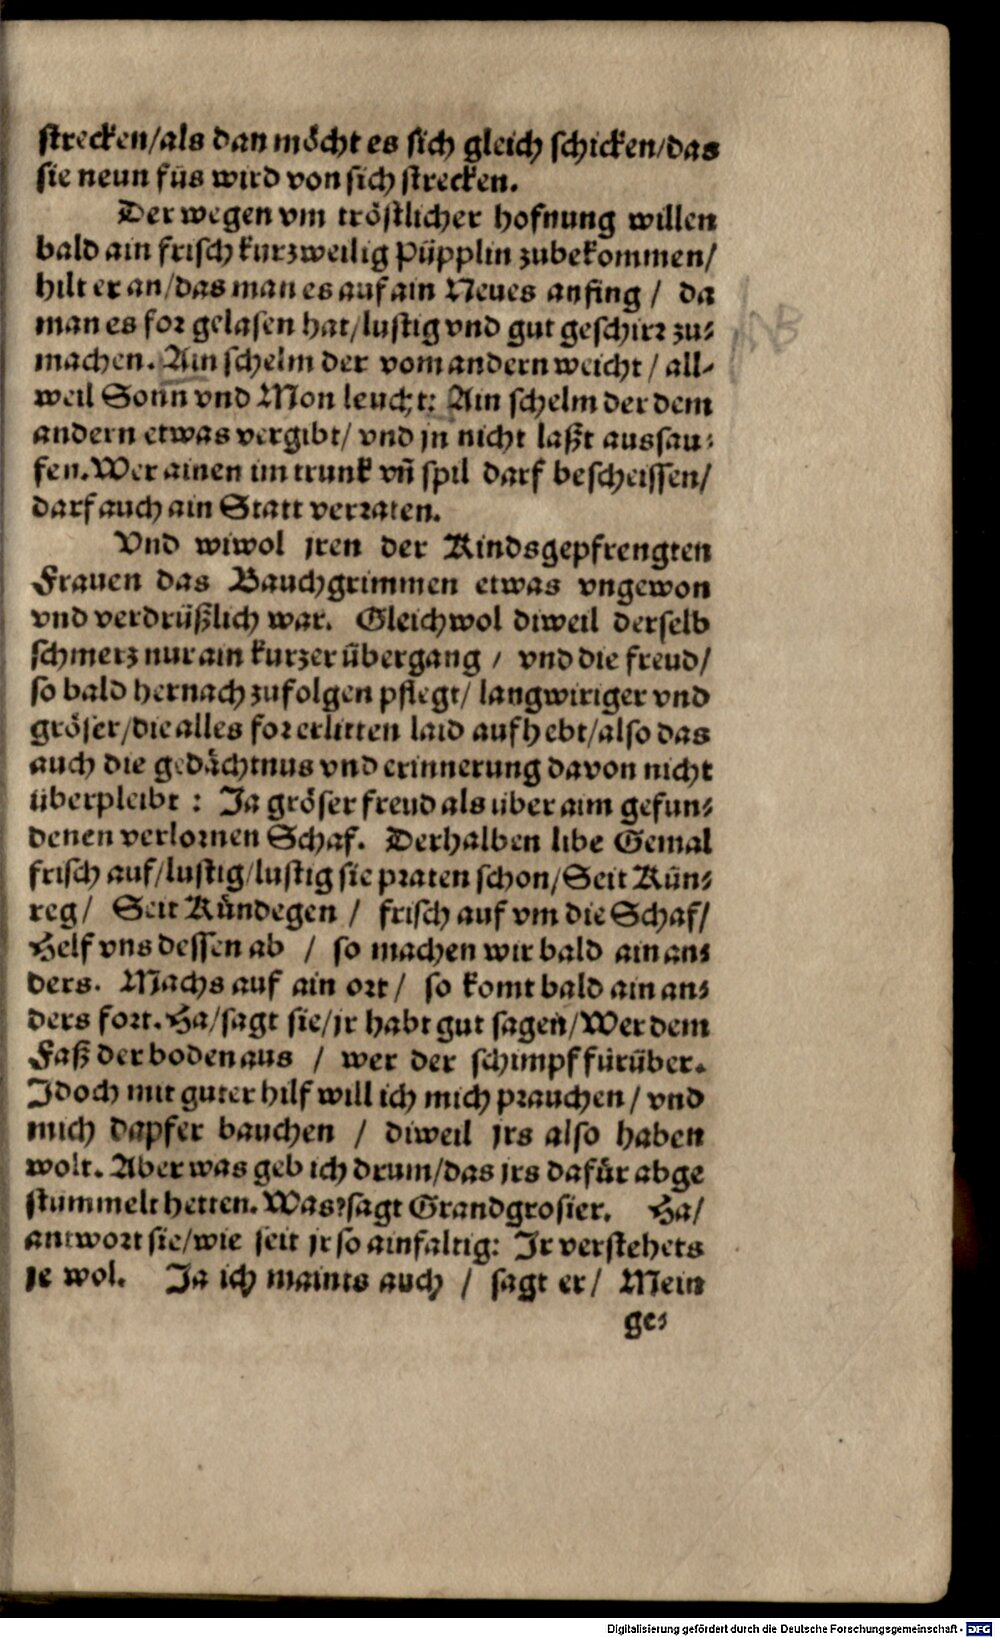 strecken/als dan möcht es sich gleich schicken/das
sie neun füs wird von sich strecken.
Der wegen vm tröstlicher hofnung willen
bald ain frisch kurzweilig Püpplin zubekommen/
hilt er an/das man es auf ain Neues anfing / da
man es for gelasen hat/lustig vnd gut geschirr zu-
machen. Ain schelm der vom andern weicht / all-
weil Sonn vnd Mon leucht: Ain schelm der dem
andern etwas vergibt/ vnd jn nicht laßt aussau-
fen. Wer ainen im trunk vñ spil darf bescheissen/
darf auch ain Statt verraten.
Vnd wiwol jren der Kindsgepfrengten
Frauen das Bauchgrimmen etwas vngewon
vnd verdrüßlich war. Gleichwol diweil derselb
schmerz nur ain kurzer übergang / vnd die freud/
so bald hernach zufolgen pflegt/ langwiriger vnd
gröser/die alles for erlitten laid aufhebt/also das
auch die gedächtnus vnd erinnerung davon nicht
überpleibt : Ja gröser freud als über aim gefun-
denen verlornen Schaf. Derhalben libe Gemal
frisch auf/lustig/lustig sie praten schon/Seit Kün-
reg/ Seit Kündegen / frisch auf vm die Schaf/
Helf vns dessen ab / so machen wir bald ain an-
ders. Machs auf ain ort/ so komt bald ain an-
ders fort. Ha/sagt sie/jr habt gut sagen/Wer dem
Faß der boden aus / wer der schimpf fürüber.
Jdoch mit guter hilf will ich mich prauchen / vnd
mich dapfer bauchen / diweil jrs also haben
wolt. Aber was geb ich drum/das jrs dafür abge
stümmelt hetten. Was? sagt Grandgosier. Ha/
antwort sie/wie seit jr so ainfaltig: Jr verstehets
je wol. Ja ich maints auch / sagt er/ Mein
ge-
Digitalisierung gefördert durch die Deutsche Forschungsgemeinschaft - DFG